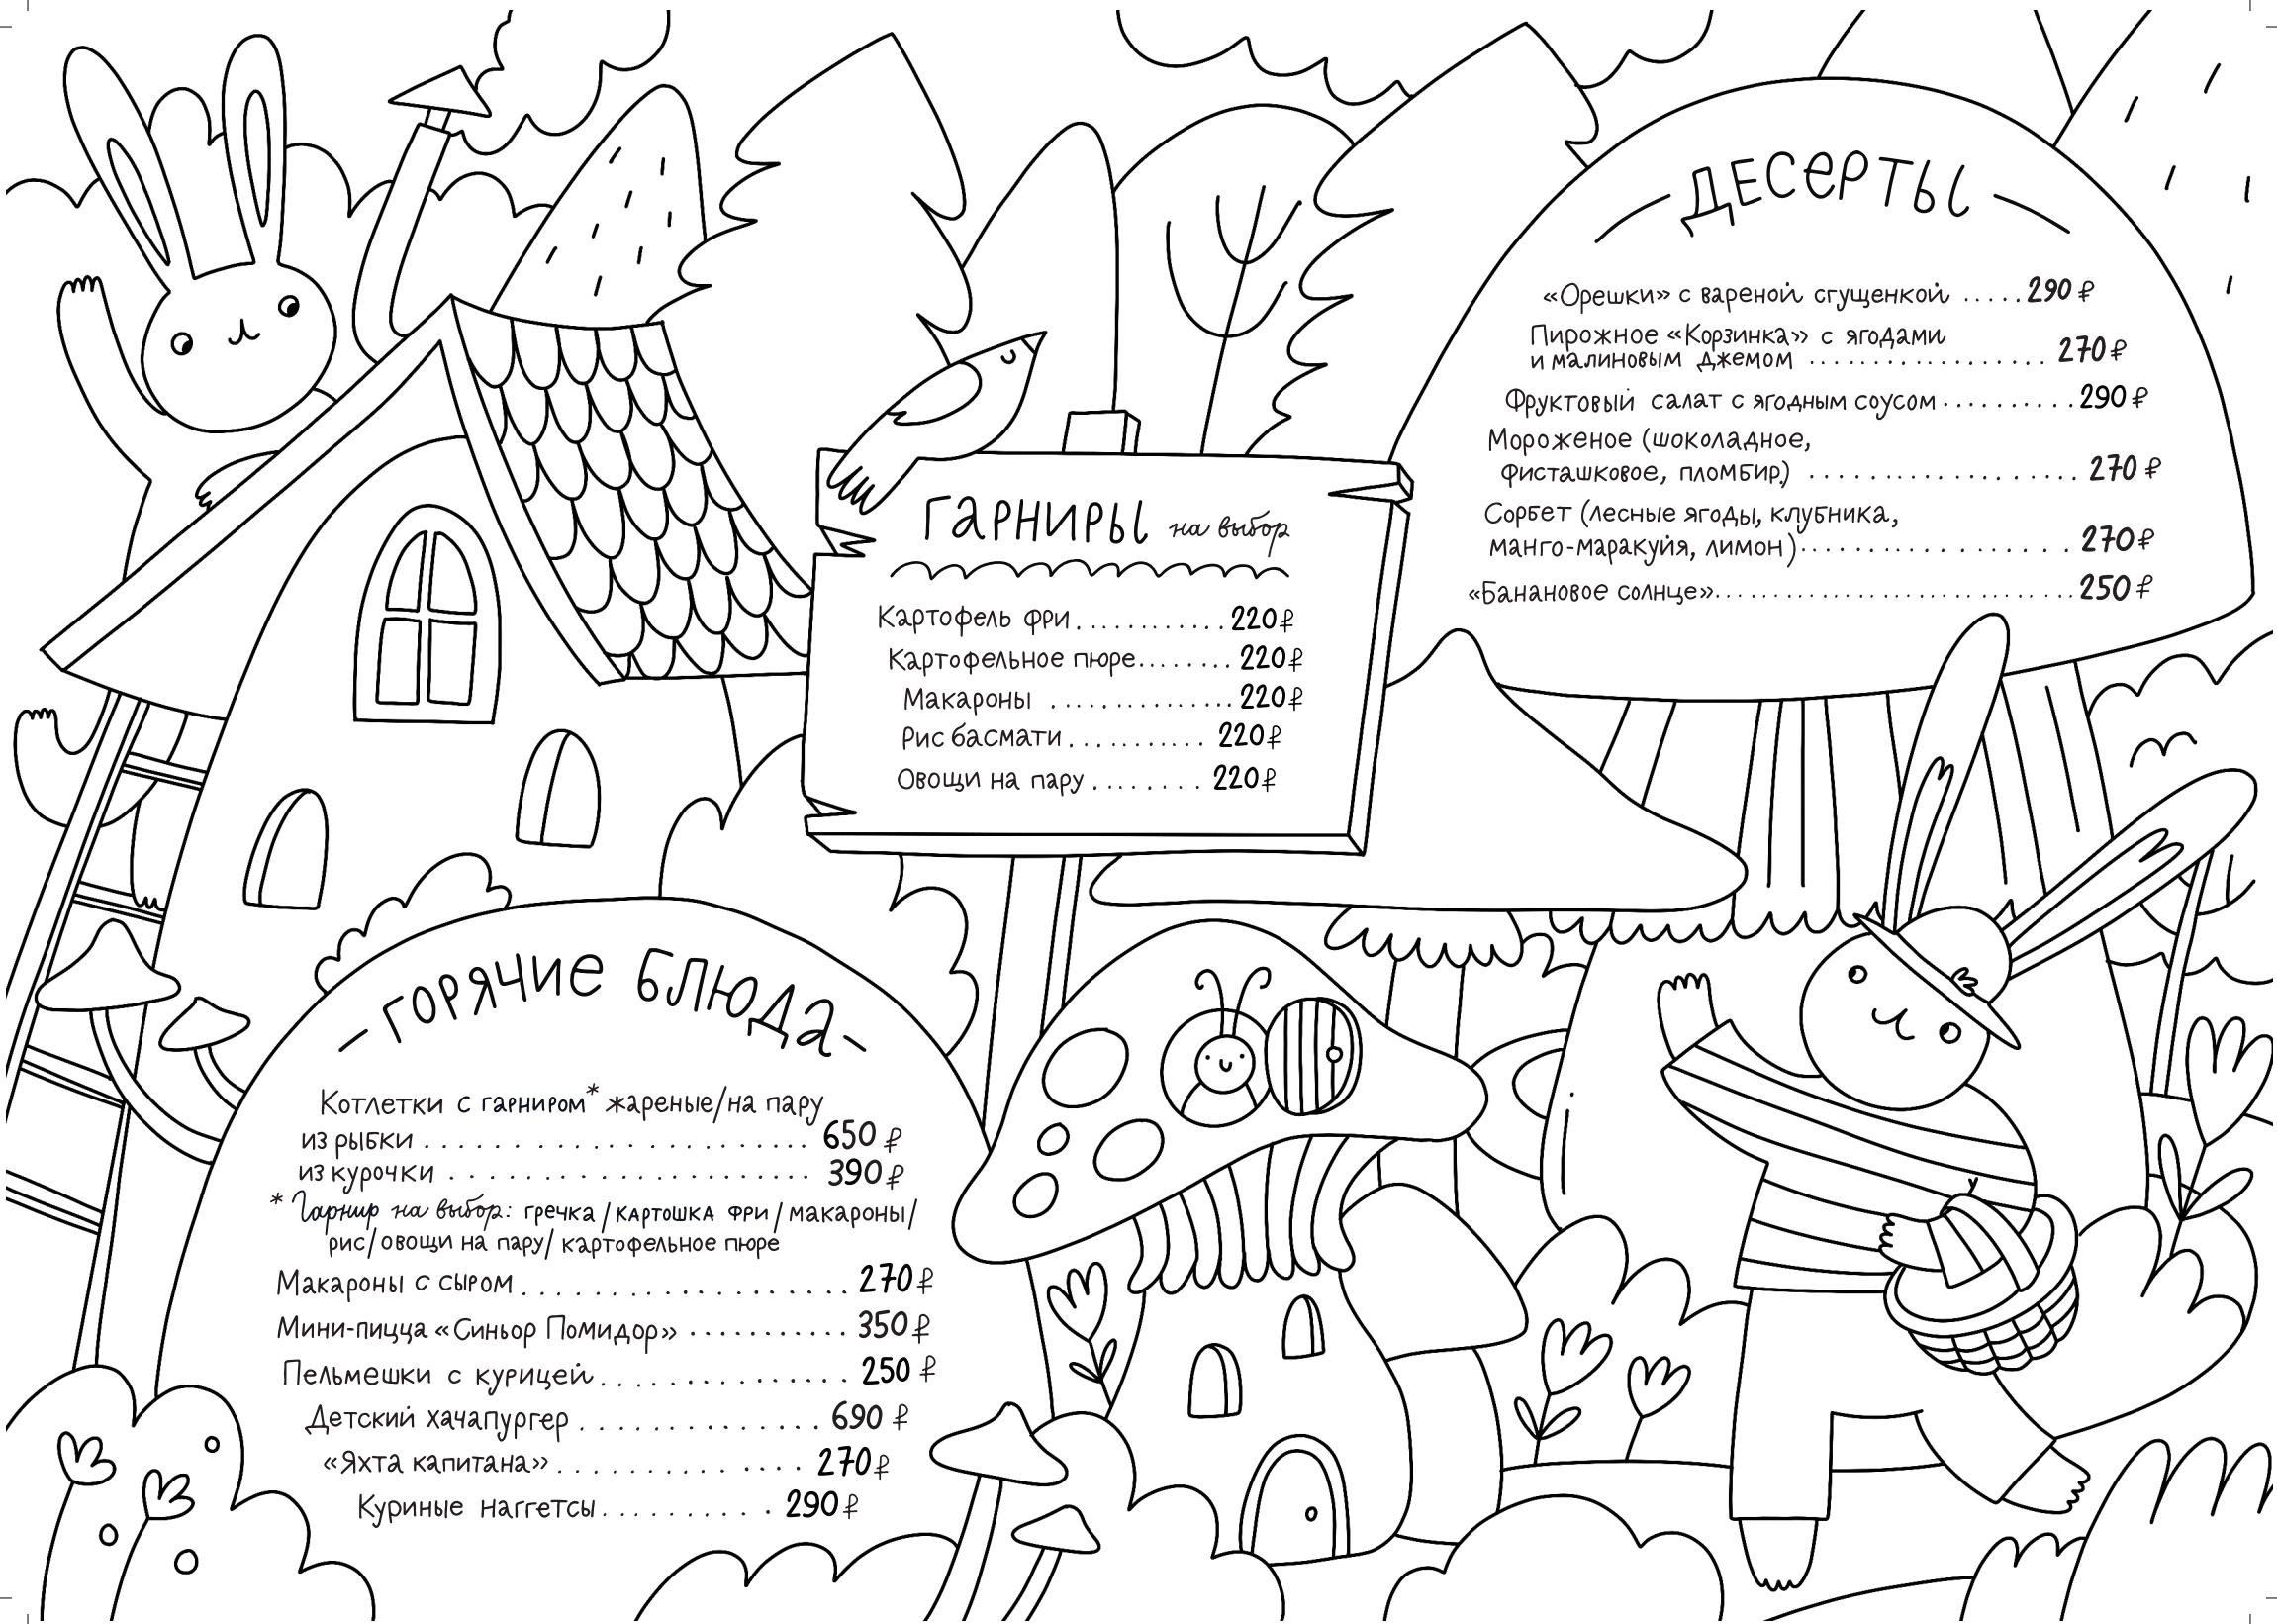 ГАРНИРЫ на выбор
Картофель фри............220₽
Картофельное пюре........220₽
Макароны ...............220₽
Рис басмати...........220₽
Овощи на пару........220₽
ДЕСЕРТЫ
«Орешки» с вареной сгущенкой .....290₽
Пирожное «Корзинка» с ягодами
и малиновым джемом ..................270₽
Фруктовый салат с ягодным соусом..........290₽
Мороженое (шоколадное,
фисташковое, пломбир) ..................270₽
Сорбет (лесные ягоды, клубника,
манго-маракуйя, лимон)..................270₽
«Банановое солнце»..............................250₽
ГОРЯЧИЕ БЛЮДА
Котлетки с гарниром* жареные/на пару
из рыбки ........................650₽
из курочки ....................390₽
* Гарнир на выбор: гречка/картошка фри/макароны/
рис/овощи на пару/картофельное пюре
Макароны с сыром....................270₽
Мини-пицца «Синьор Помидор» ...........350₽
Пельмешки с курицей..............250₽
Детский хачапургер .............690₽
«Яхта капитана»..............270₽
Куриные наггетсы..........290₽